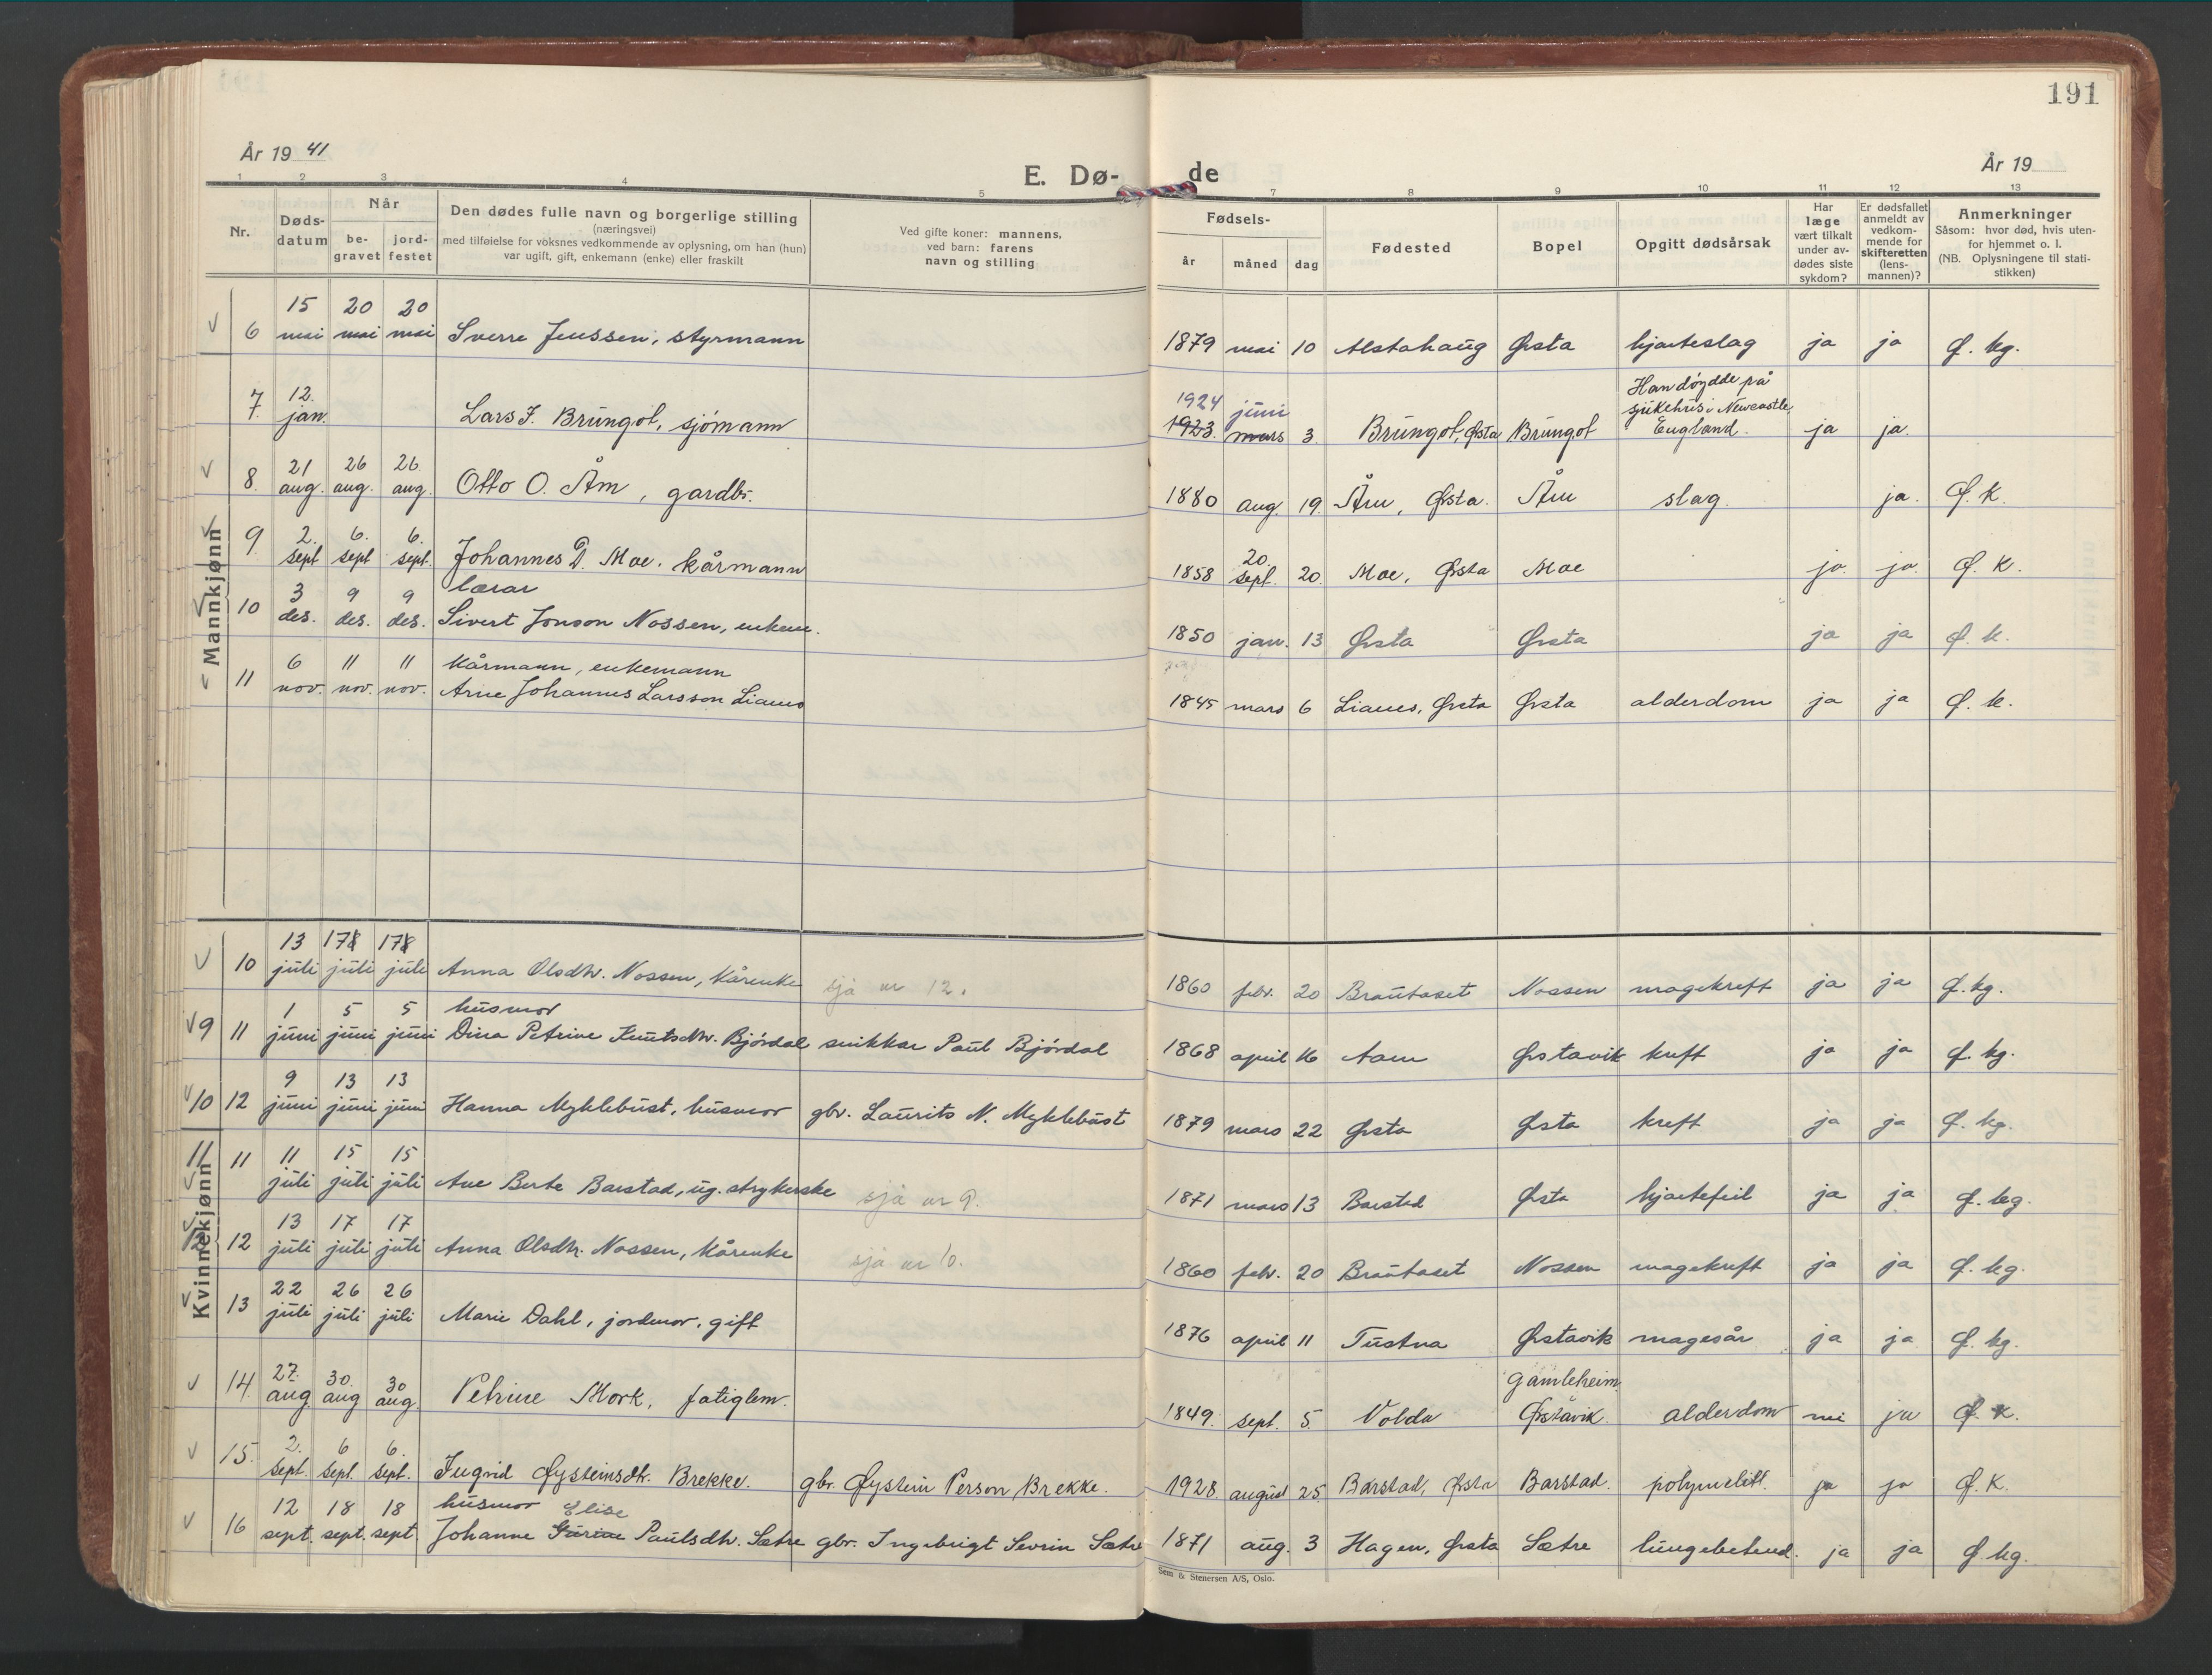 191
År 19 41
E. Dø-
de
År 19
1 2 3 4 5 7 8 9 10 11 12 13
Nr.
Døds-
datum
Når
be-
gravet
jord-
festet
Den dødes fulle navn og borgerlige stilling
(næringsvei)
med tilføielse for voksnes vedkommende av oplysning, om han (hun)
var ugift, gift, enkemann (enke) eller fraskilt
Ved gifte koner: mannens,
ved barn: farens
navn og stilling
Fødsels-
år måned dag
Fødested
Bopel
Opgitt dødsårsak
Har
læge
vært tilkalt
under av-
dødes siste
sykdom?
Er dødsfallet
anmeldt av
vedkom-
mende for
skifteretten
(lens-
mannen)?
Anmerkninger
Såsom: hvor død, hvis uten-
for hjemmet o. l.
(NB. Oplysningene til stati-
stikken)
Mannkjønn
15 20 20
6 mai mai mai Sverre Jenssen, styrmann 1879 mai 10 Alstahaug Ørsta hjarteslag ja ja Ø. kg.
12. 1924 juni Han døydde på
sjukehus i Newcastle
7. jan. Lars J. Brungot, sjømann 1923. mars 3. Brungot, Ørsta Brungot England. ja ja.
21 26 26.
8. aug. aug. aug. Otto O. Åm, gardbr. 1880 aug. 19. Åm, Ørsta. Åm slag. ja. Ø. K.
2. 6. 6. 20.
9 sept sept sept. Johannes D. Moe. kårmann 1858 sept. 20. Moe, Ørsta Moe ja. ja. Ø. K.
3 9 9 lærar
10 des. des. des. Sivert Jonson Nossen, enkem. 1850 jan. 13 Ørsta Ørsta ja ja Ø. k.
6 11 11 Kårmann, enkemann
11 nov. nov. nov. Arne Johannes Larsson Lianes 1845 mars 6 Lianes, Ørsta Ørsta alderdom ja ja Ø. k.
Kvinnekjønn
13 178 178
10 juli juli juli Anna Olsdtr. Nossen, kårenke sjå nr 12. 1860 febr. 20 Brautaset Nossen magekreft ja ja Ø. kg.
1 5 5 husmor
9 11 juni juni juni Dina Petrine Knutsdtr. Bjørdal snikkar Paul Bjørdal 1868 april 16 Aam Ørstavik kreft ja ja Ø. kg.
9 13 13
10 12 juni juni juni Hanna Myklebust, husmor gbr. Laurits N. Myklebust 1879 mars 22 Ørsta Ørsta kreft ja ja Ø. kg.
11 15 15
11 11 juli juli juli Ane Berte Barstad, ug. strykerske sjå nr 9. 1871 mars 13 Barstad Ørsta hjartefeil ja ja Ø. kg.
13 17 17
12 12 juli juli juli Anna Olsdtr. Nossen, kårenke sjå nr 10. 1860 febr. 20 Brautaset Nossen magekreft ja ja Ø. kg.
22 26 26
13 juli juli juli Marie Dahl, jordmor, gift 1876 april 11 Tustna Ørstavik magesår ja ja Ø. kg.
27. 30. 30 Gamleheim
14. aug. aug aug. Petrine Mork, fatiglem. 1849. sept. 5. Volda Ørstavik. alderdom nei ja Ø. K.
2. 6 6.
15. sept. sept. sept. Ingrid Øysteinsdtr. Brekke. gbr. Øystein Person Brekke. 1928. august 25. Barstad, Ørsta Barstad. polymelitt. ja ja Ø. K.
12 18 18 husmor Elise
16 sept. sept. sept. Johanne Paulsdtr. Sætre gbr. Ingebrigt Sevrin Sætre 1871 aug. 3 Hagen, Ørsta Sætre lungebetend. ja ja Ø. kg.
Sem & Stenersen A/S, Oslo.